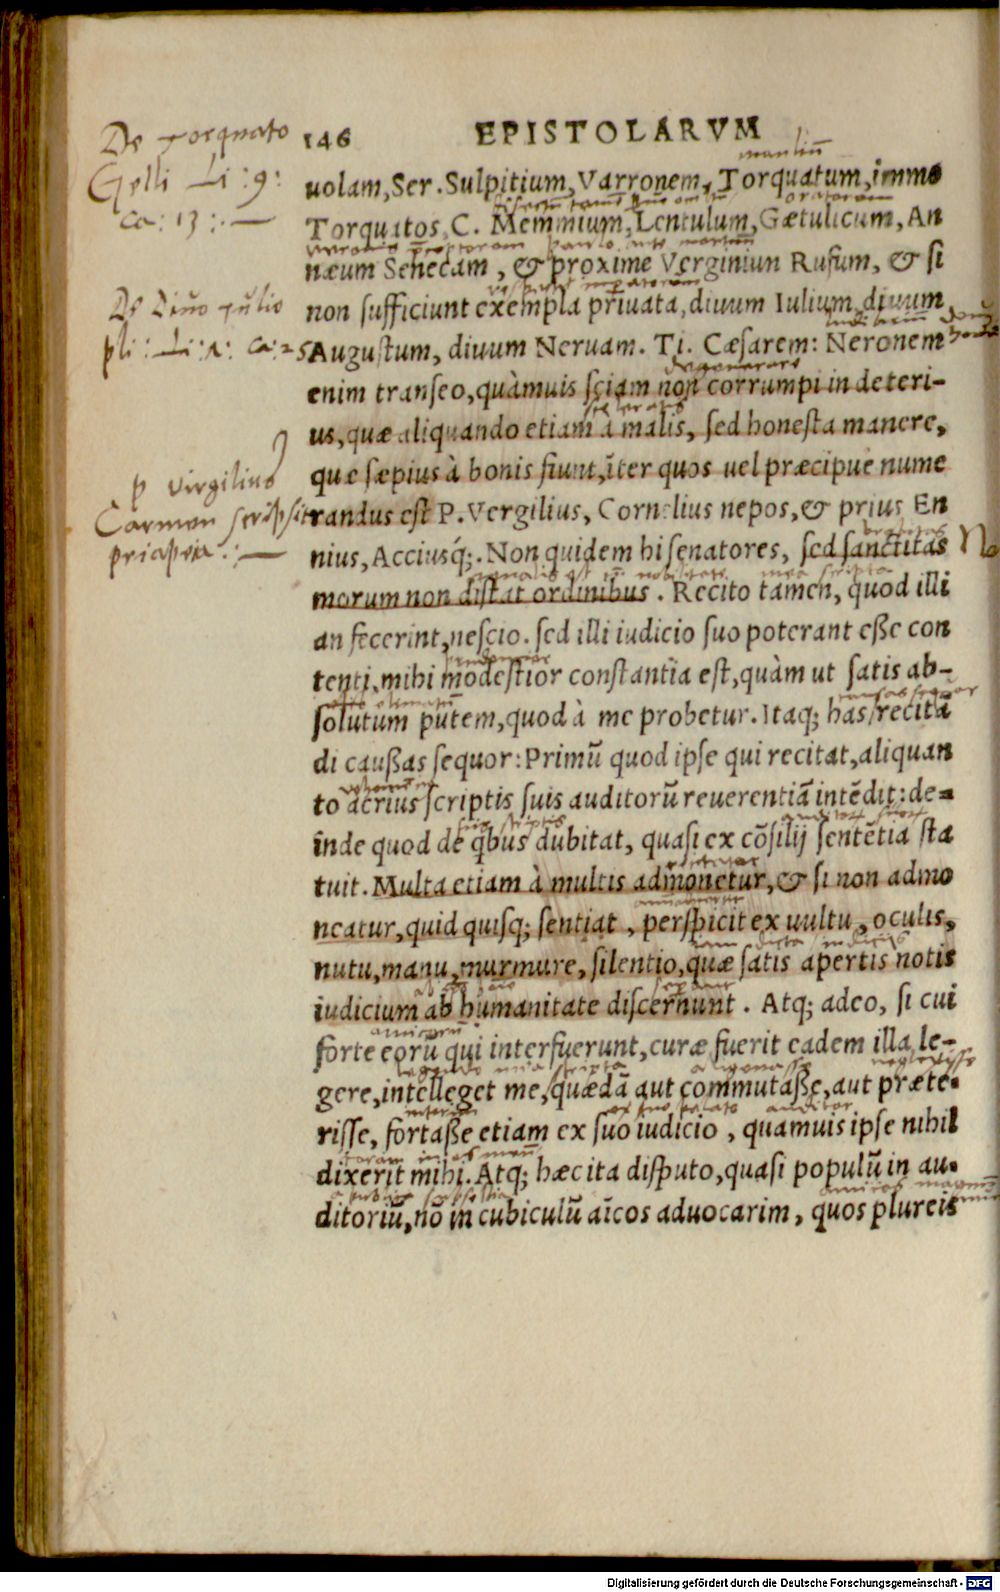 De Torquato
Gelli Li: 9:
ca: 13:
146 EPISTOLARVM
manliũ
uolam, Ser. Sulpitium, Varronem, Torquatum, immo
oratorem
Torquatos, C. Memmium, Lentulum, Gætulicum, An
neronis præceptorem paulo ante mortuũ
næum Senecam, & proxime Verginiun Rufum, & si
De Diuo Julio
non sufficiunt exempla priuata, diuum Iulium, diuum
pli: Li: ca: 25
Augustum, diuum Neruam. Ti. Cæsarem: Neronem
degenerare
enim transeo, quàmuis sciam non corrumpi in deteri-
sceleratis
us, quæ aliquando etiam à malis, sed honesta manere,
que sæpius à bonis fiunt, ĩter quos uel præcipue nume
p virgilius
Carmen scripsit
priapeia
randus est P. Vergilius, Cornelius nepos, & prius En
nius, Acciusq́;. Non quidem hi senatores, sed sanctitas
mea scripta
morum non distat ordinibus. Recito tamen, quod illi
an fecerint, nescio. sed illi iudicio suo poterant eße con
tenti, mihi modestior constantia est, quàm ut satis ab-
causas sequor
solutum putem, quod à me probetur. Itaq; has recitã
di caußas sequor: Primũ quod ipse qui recitat, aliquan
to acrius scriptis suis auditorũ reuerentiã intẽdit: de-
suis scriptis
inde quod de qbus dubitat, quasi ex cõsilij sentẽtia sta
tuit. Multa etiam à multis admonetur, & si non admo
neatur, quid quisq; sentiat, perspicit ex uultu, oculis,
iam dicta indicijs
nutu, manu, murmure, silentio, quæ satis apertis notis
iudicium ab humanitate discernunt. Atq; adeo, si cui
amicorũ
forte eorũ qui interfuerunt, curæ fuerit eadem illa le-
legendo mea scripta neglexisse
gere, intelleget me, quædã aut commutaße, aut præte-
auditor
risse, fortaße etiam ex suo iudicio, quamuis ipse nihil
dixerit mihi. Atq; hæc ita disputo, quasi populũ in au-
amicos
ditoriũ, nõ in cubiculũ aĩcos aduocarim, quos plureis
Digitalisierung gefördert durch die Deutsche Forschungsgemeinschaft - DFG